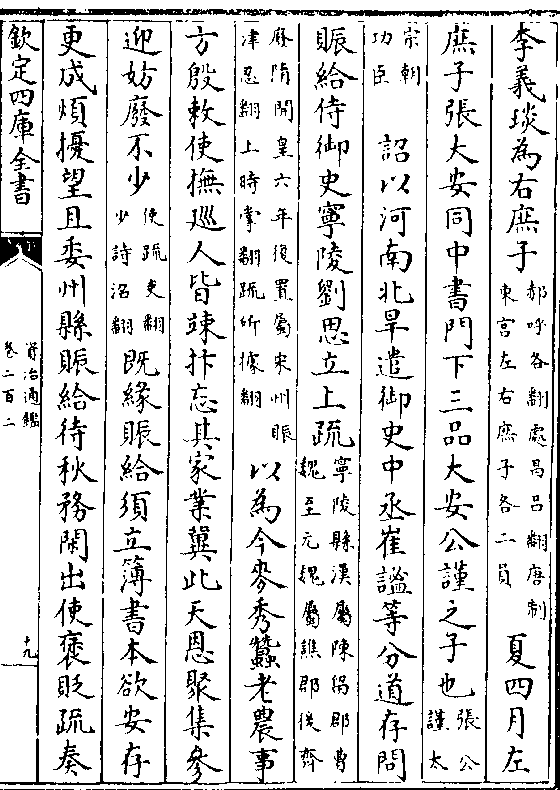 李義琰為右庶子郝呼各翻處昌呂翻唐制東宮左右庶子各二員夏四月左
庶子張大安同中書門下三品大安公謹之子也張公謹太
宗朝功臣詔以河南北旱遣御史中丞崔謐等分道存問
賑給侍御史寧陵劉思立上疏寧陵縣漢屬陳留郡曹魏至元魏屬譙郡後齊
廢隋開皇六年復置屬宋州賑津忍翻上時掌翻疏所據翻以為今麥秀蠶老農事
方殷敕使撫巡人皆竦抃忘其家業冀此天恩聚集參
迎妨廢不少使疏吏翻少詩沼翻既緣賑給須立簿書本欲安存
更成煩擾望且委州縣賑給待秋務閑出使褒貶疏奏
欽定四庫全書
資治通鑑
卷二百二
十九